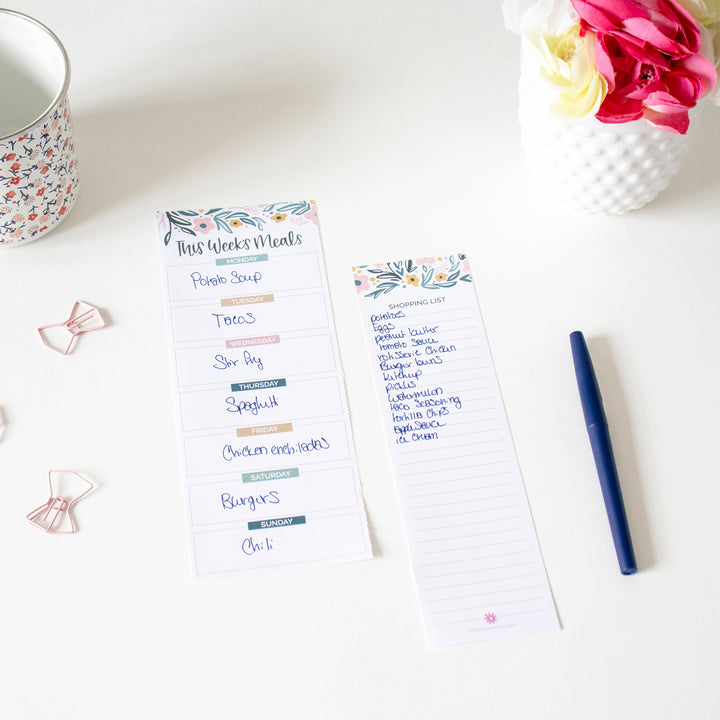 This Weeks Meals
MONDAY
Potato Soup
TUESDAY
Tacos
WEDNESDAY
Stir fry
THURSDAY
Spaghetti
FRIDAY
Chicken enchiladas
SATURDAY
Burgers
SUNDAY
Chili
SHOPPING LIST
potatoes
Eggs
peanut butter
tomato sauce
rotisserie chicken
Burger buns
ketchup
pickles
watermelon
taco seasoning
tortilla chips
applesauce
ice cream